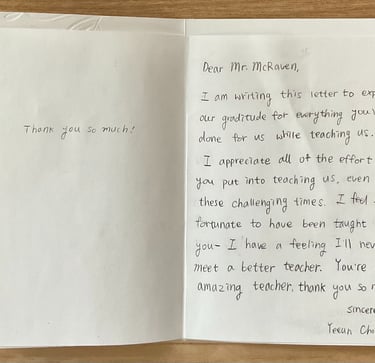 Thank you so much!
Dear Mr. McRaven,
I am writing this letter to exp
our gratitude for everything you'
done for us while teaching us.
I appreciate all of the effort
you put into teaching us, even
these challenging times. I feel
fortunate to have been taught
you- I have a feeling I'll nev
meet a better teacher. You're
amazing teacher, thank you so
Sincere
Yeeun Cho